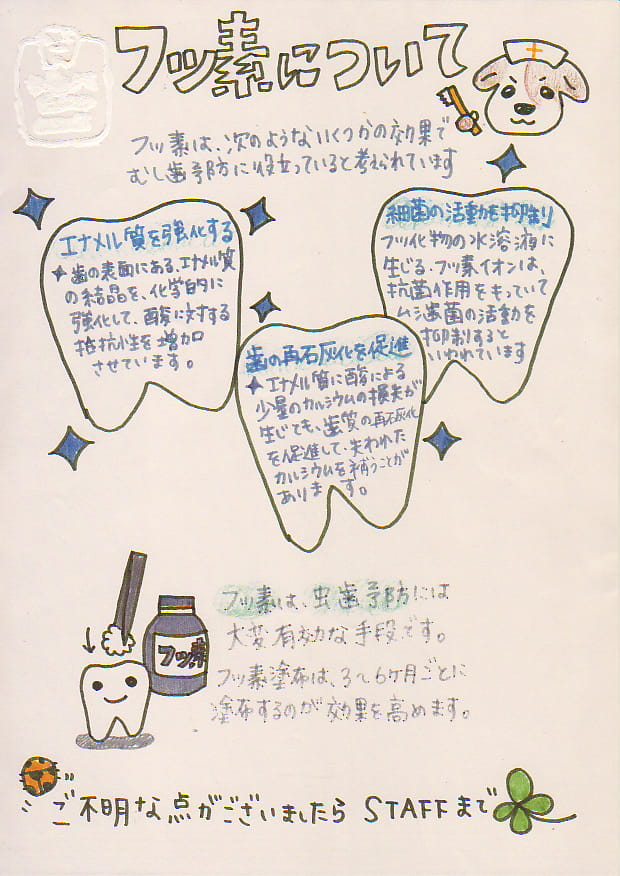 フッ素について
フッ素は、次のようないくつかの効果で
むし歯予防に役立っていると考えられています
エナメル質を強化する
歯の表面にある、エナメル質
の結晶を、化学的に
強化して、酸に対する
抵抗性を増加
させています。
細菌の活動を抑制
フッ化物の水溶液に
生じる・フッ素イオンは、
抗菌作用をもっていて
ムシ歯菌の活動を
抑制すると
いわれています
歯の再石灰化を促進
エナメル質に酸による
少量のカルシウムの損失が
生じても、歯質の再石灰化
を促進して、失われた
カルシウムを補うことが
あります。
フッ素
フッ素は、虫歯予防には
大変有効な手段です。
フッ素塗布は、3~6ヶ月ごとに
塗布するのが効果を高めます。
ご不明な点がございましたら STAFFまで